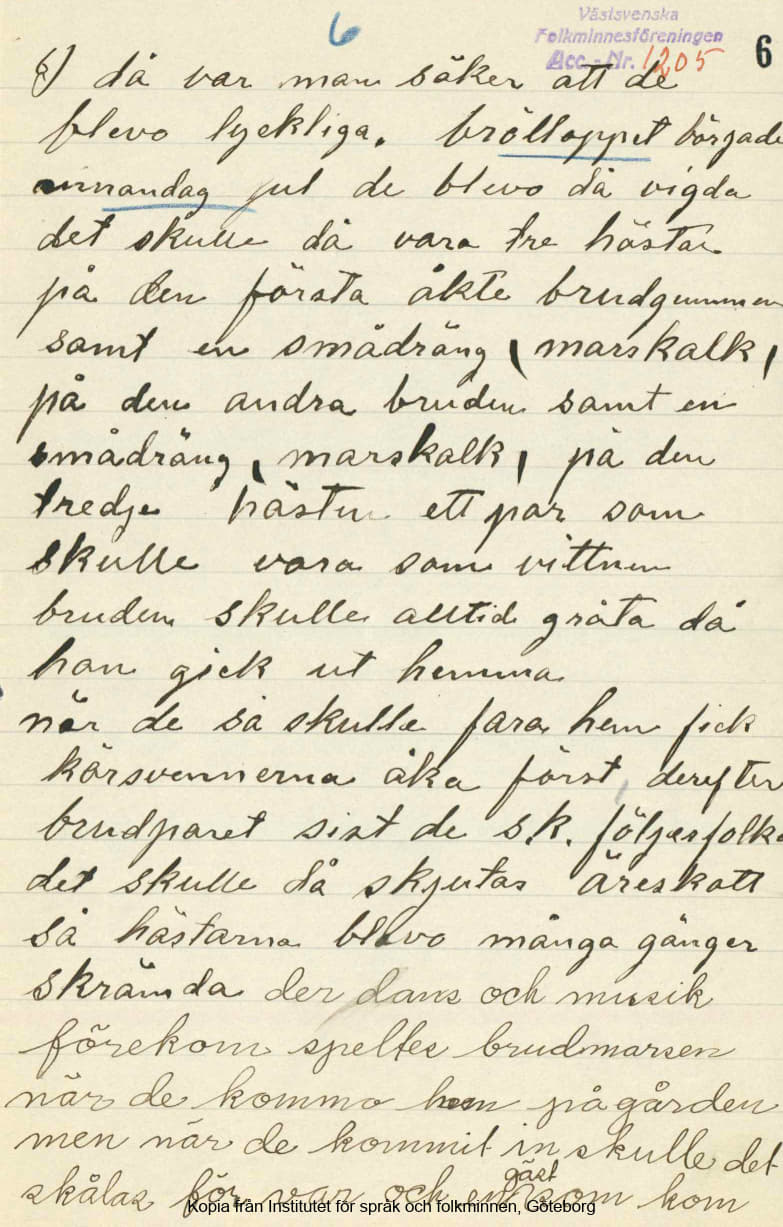 6
Västsvenska
Folkminnesföreningen
Acc.-Nr. 1205
6
6) då var man säker att de
blevo lyckliga. brölloppet började
annandag jul de blevo då vigda
det skulle då vara tre hästar
på den första åkte brudgummen
samt en smådräng (marskalk)
på den andra bruden samt en
smådräng, (marskalk) på den
tredje hästen ett par som
skulle vara som vittnen
bruden skulle alltid gråta då
hon gick ut hemma
när de så skulle fara hem fick
körsvennerna åka först derefter
brudparet sist de s.k. följesfolk
det skulle då skjutas äreskott
så hästarna blevo många gånger
skrämda der dans och musik
förekom speltes brudmarsen
när de kommo hem på gården
men när de kommit in skulle det
gäst
skålas för var och en som kom
Kopia från Institutet för språk och folkminnen, Göteborg